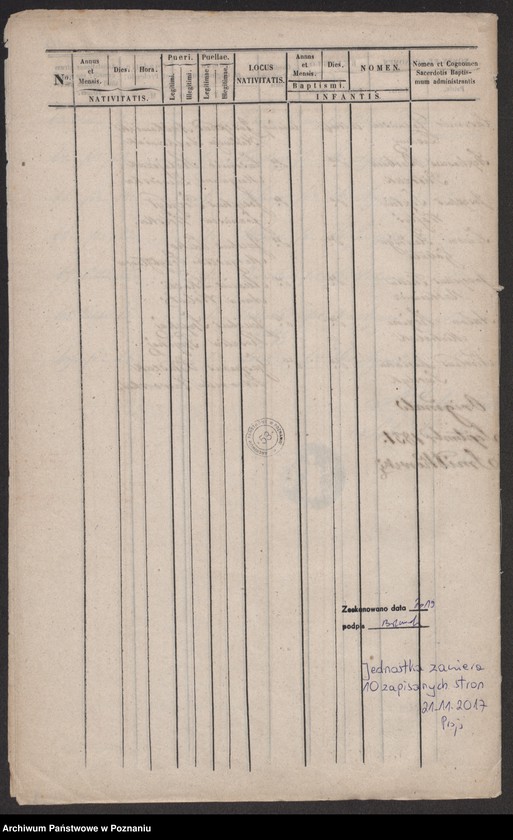 No.
Annus et Mensis.
Dies.
Hora.
NATIVITATIS.
Pueri.
Legitimi.
Illegitimi.
Puellae.
Legitimae.
Illegitimae.
LOCUS NATIVITATIS.
Annus et Mensis.
Dies.
Baptismi.
NOMEN.
INFANTIS.
Nomen et Cognomen
Sacerdotis Baptis-
mum administrantis
Zeskanowano data 2019
podpis
Jednostka zawiera
10 zapisanych stron
21.11.2017
Archiwum Państwowe w Poznaniu